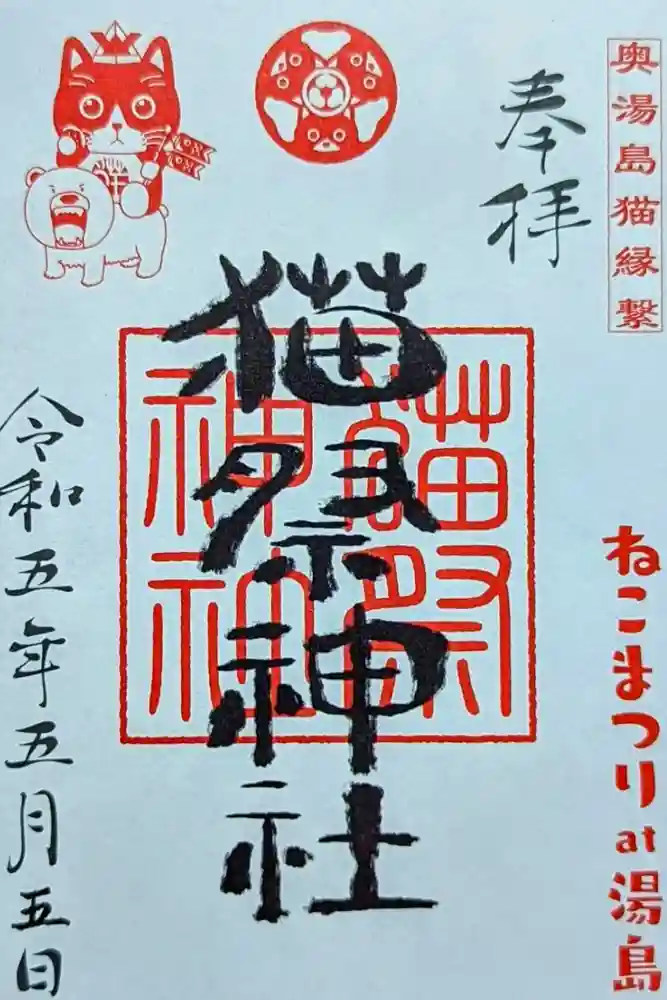 奥湯島猫縁繋
奉拝
猫祭神社
令和五年五月五日
ねこまつりat湯島